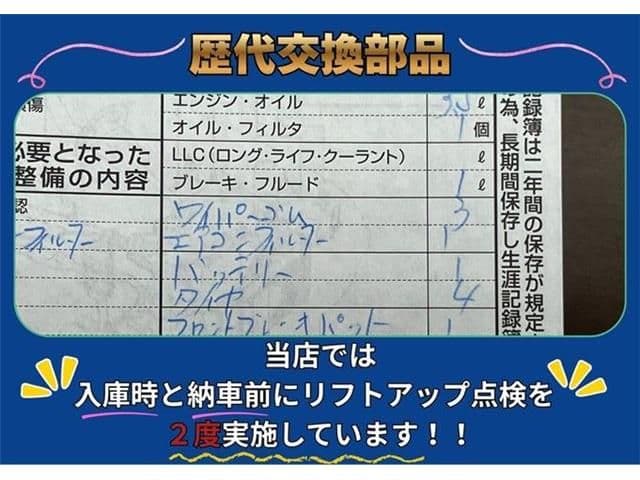 歴代交換部品
エンジン・オイル ℓ
オイル・フィルタ 1 個
必要となった LLC(ロング・ライフ・クーラント) ℓ
整備の内容 ブレーキ・フルード 1 ℓ
認 ワイパーゴム 3
フィルター エアコンフィルター 1
バッテリー 1
タイヤ 4
フロントブレーキパット 1
記録簿は二年間の保存が規定
の為、長期間保存し生涯記録簿
当店では
入庫時と納車前にリフトアップ点検を
2度実施しています!!